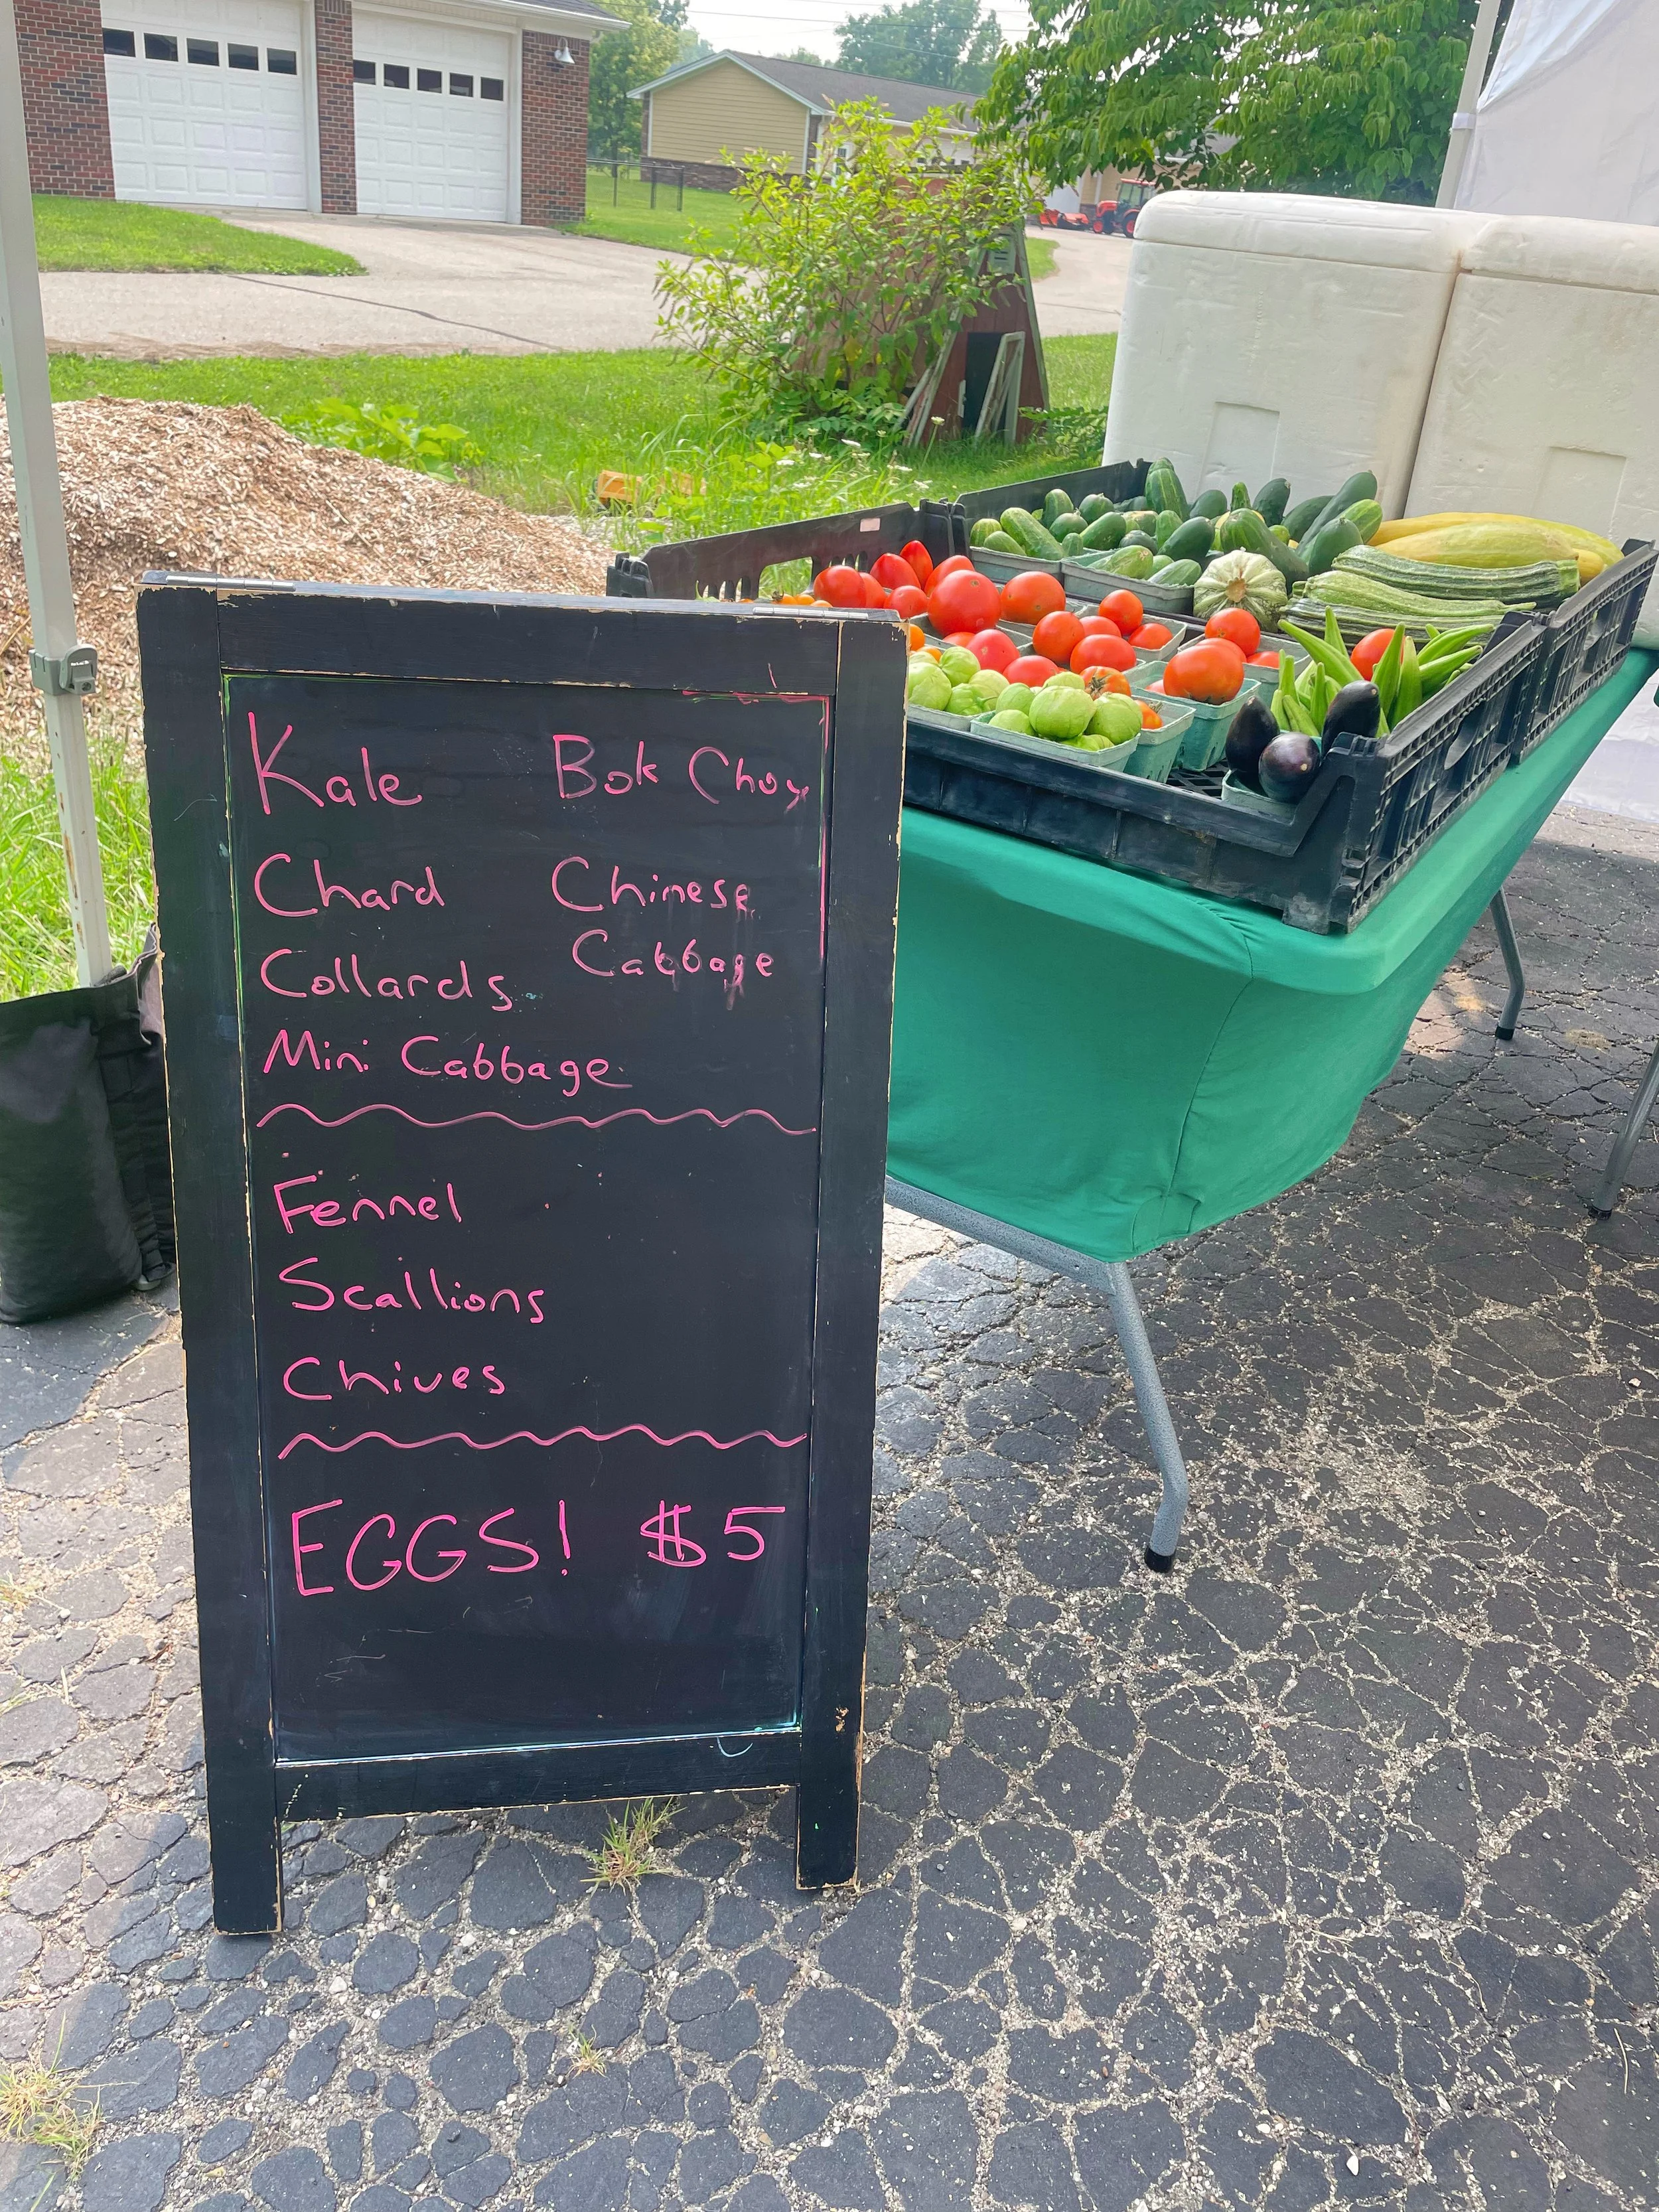 Kale Bok Choy
Chard Chinese
Cabbage
Collards
Mini Cabbage
Fennel
Scallions
Chives
EGGS! $5